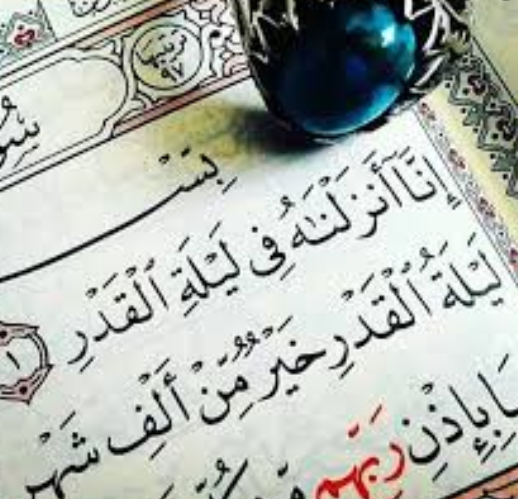 بِسْ
إِنَّا أَنزَلْنَٰهُ فِى لَيْلَةِ ٱلْقَدْرِ ١
لَيْلَةُ ٱلْقَدْرِ خَيْرٌ مِّنْ أَلْفِ شَهْرٍ
بِإِذْنِ رَبِّهِم